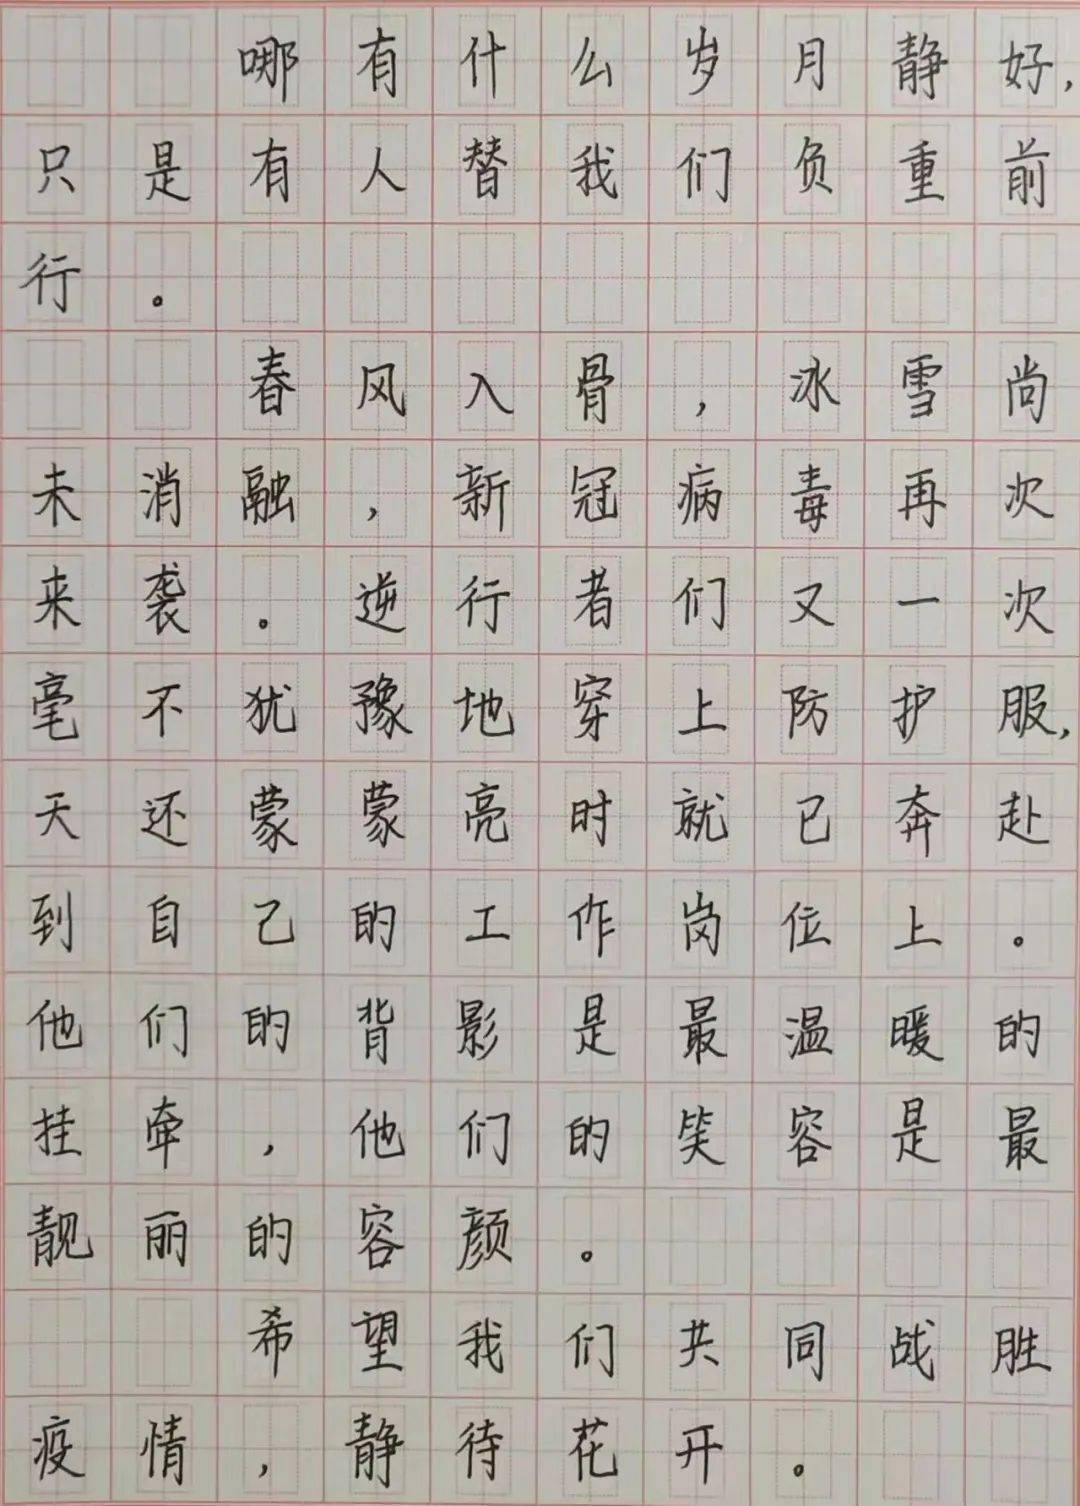 哪有什么岁月静好,
只是有人替我们负重前
行。
春风入骨,冰雪尚
未消融,新冠病毒再次
来袭。逆行者们又一次
毫不犹豫地穿上防护服,
天还蒙蒙亮时就已奔赴
到自己的工作岗位上。
他们的背影是最温暖的
挂牵,他们的笑容是最
靓丽的容颜。
希望我们共同战胜
疫情,静待花开。